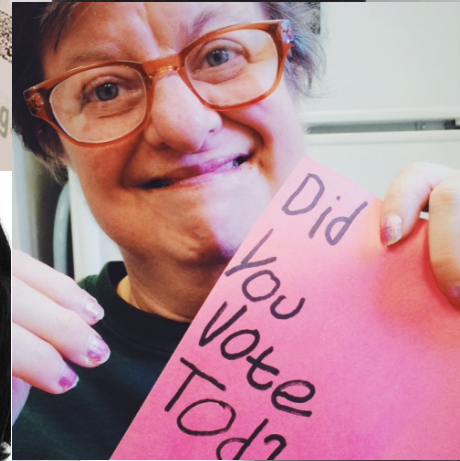 Did
You
Vote
Tod